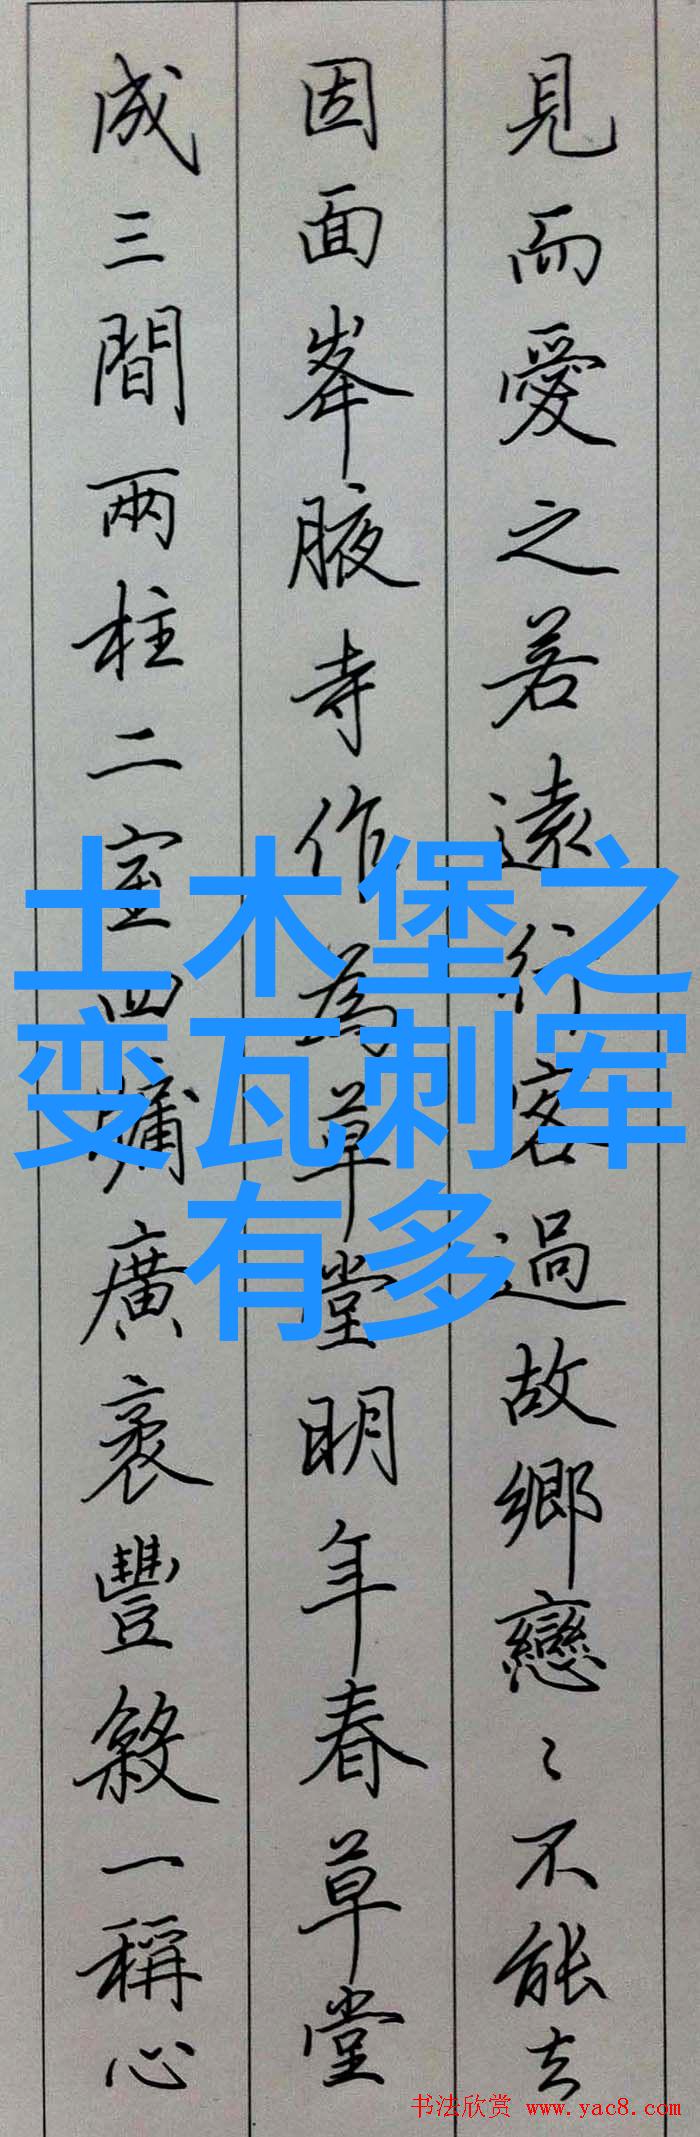 見而愛之若遠行客過故鄉戀〻不能去
因面峯腋寺作為草堂明年春草堂
成三間兩柱二室四牖廣袤豐殺一稱心
土木堡之
变瓦剌军
有多
书法欣赏 www.yac8.com